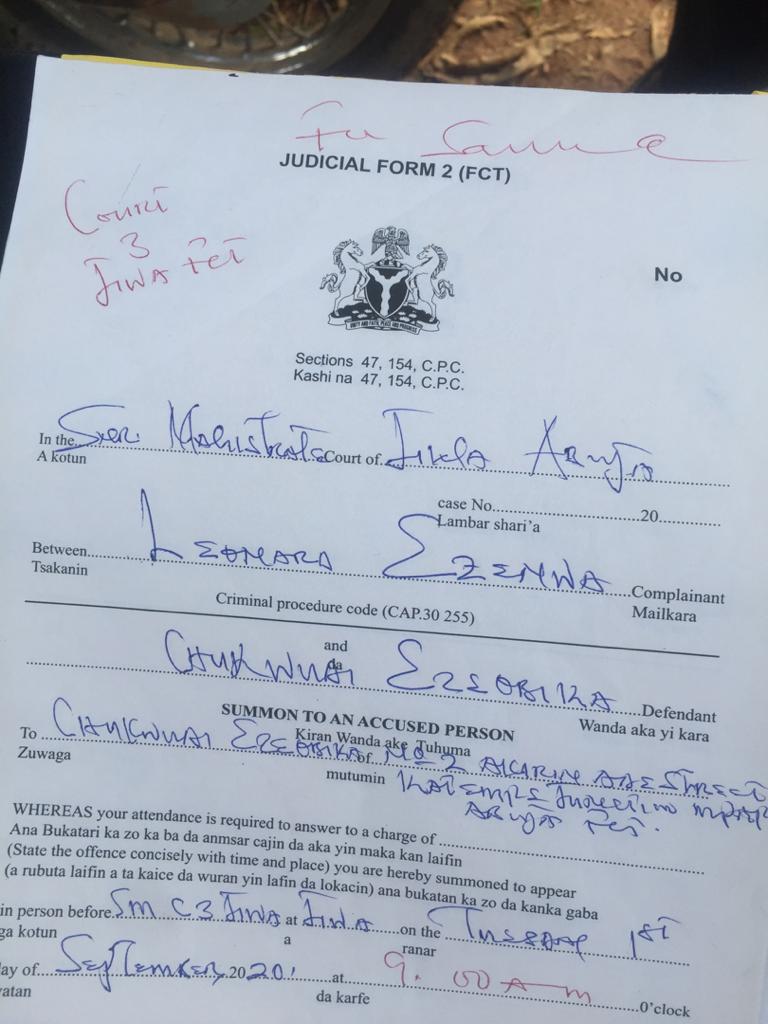 JUDICIAL FORM 2 (FCT)
Court
3
Jiwa FCT
No
UNITY AND FAITH, PEACE AND PROGRESS
Sections 47, 154, C.P.C.
Kashi na 47, 154, C.P.C.
In the Court of Abuja
A kotun
case No. 20
Lambar shari'a
Between Leonard Ezenwa Complainant
Tsakanin Mailkara
Criminal procedure code (CAP.30 255)
and
da
Ezeobika Defendant
SUMMON TO AN ACCUSED PERSON Wanda aka yi kara
Kiran Wanda ake Tuhuma
To Ezeobika of No 2 Street
Zuwaga mutumin Junction
Abuja FCT.
WHEREAS your attendance is required to answer to a charge of
Ana Bukatari ka zo ka ba da anmsar cajin da aka yin maka kan laifin
(State the offence concisely with time and place) you are hereby summoned to appear
(a rubuta laifin a ta kaice da wuran yin lafin da lokacin) ana bukatan ka zo da kanka gaba
in person before SMC3 Jiwa at Jiwa on the Tuesday 1st
ga kotun a ranar
ay of September, 2020 at 9.00 am O'clock
vatan da karfe